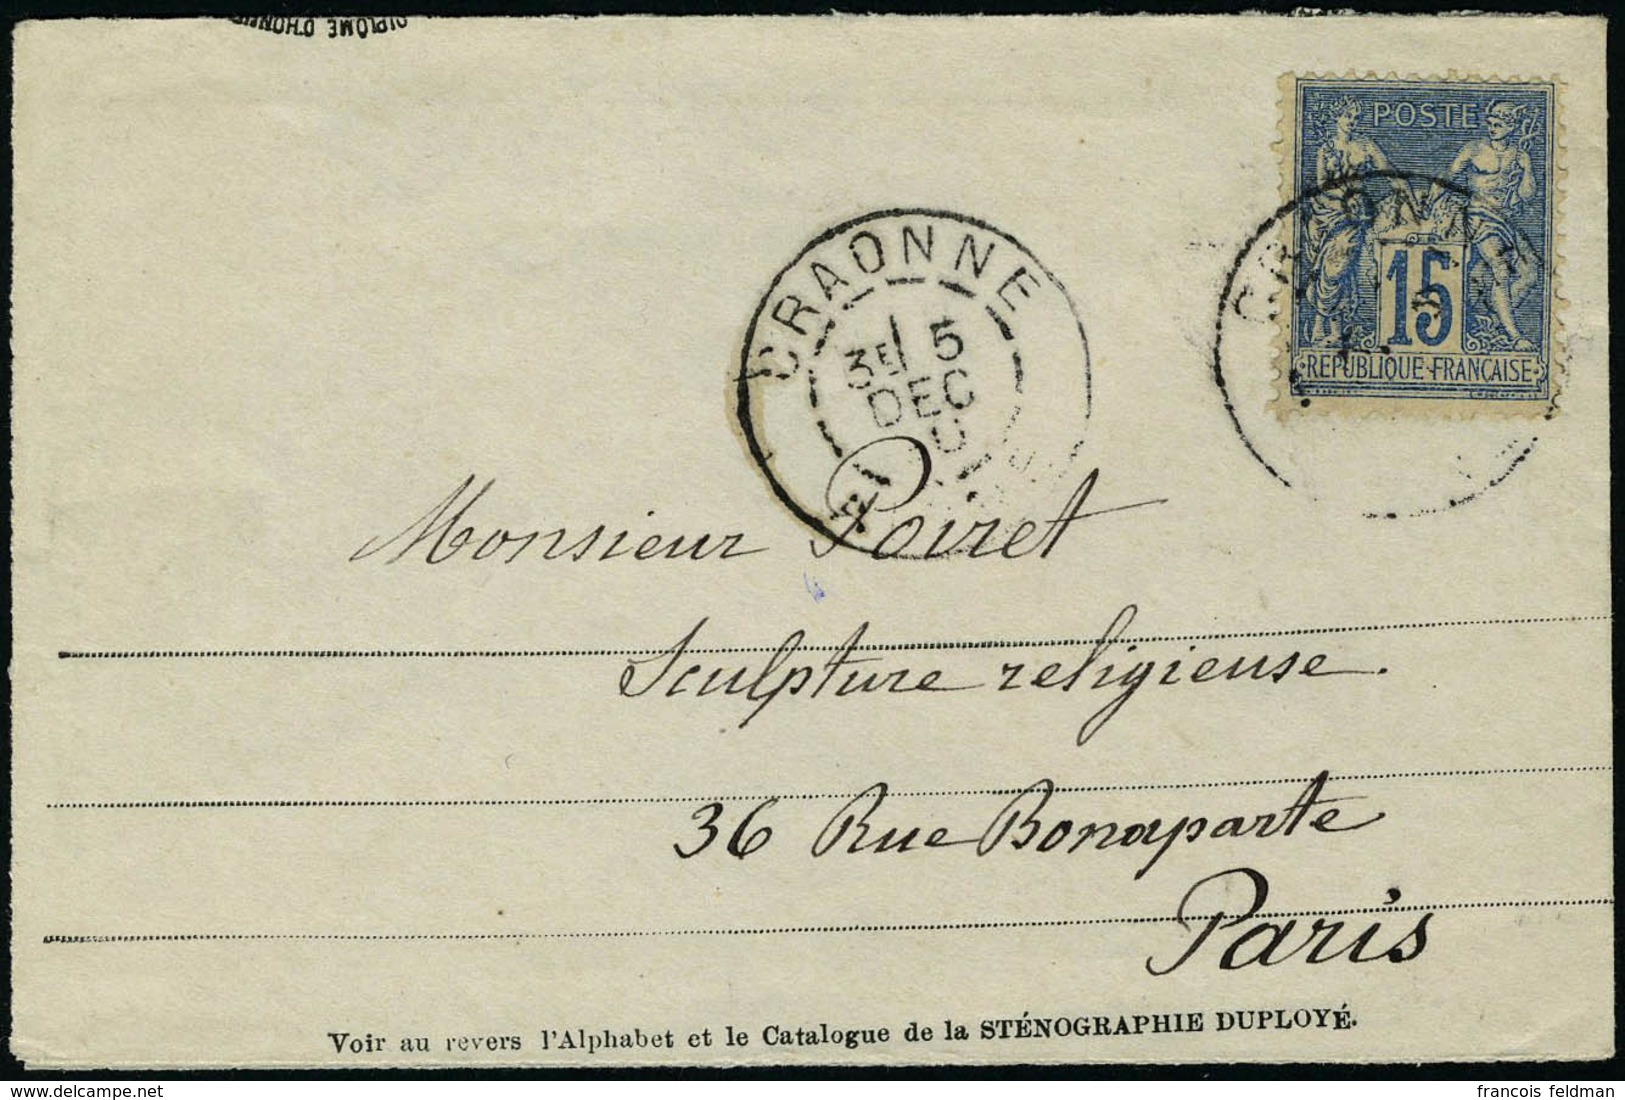 DIPLÔME D'HONNEUR
POSTE
15
REPUBLIQUE FRANCAISE
CRAONNE
CRAONNE
3E 5
DEC
Monsieur Poiret
Sculpture religieuse.
36 Rue Bonaparte
Paris
Voir au revers l'Alphabet et le Catalogue de la STÉNOGRAPHIE DUPLOYÉ.
francois feldman